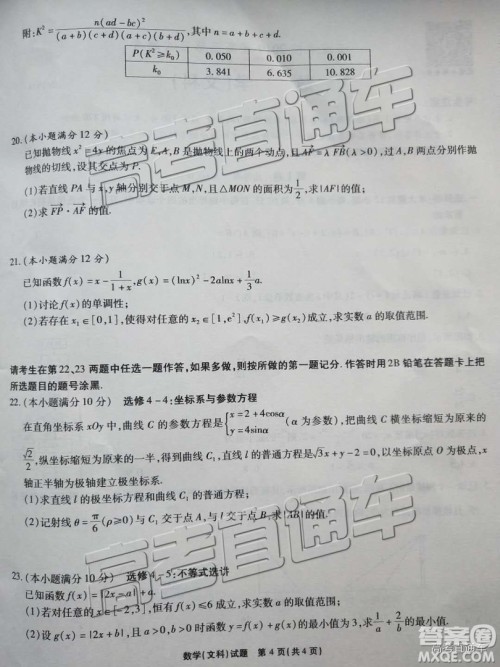 附:K²=n(ad-bc)²/((a+b)(c+d)(a+c)(b+d)),其中n=a+b+c+d.
P(K²≥k₀) 0.050 0.010 0.001
k₀ 3.841 6.635 10.828
20.(本小题满分12分)
已知抛物线x²=4x的焦点为F,A,B是抛物线上的两个动点,且AF=λFB(λ>0),过A,B两点分别作抛
物线的切线,设其交点为P.
(1)若直线PA与x,y轴分别交于点M,N,且△MON的面积为1/2,求|AF|的值;
(2)求FP·AF的值.
21.(本小题满分12分)
已知函数f(x)=x-1/(1+x),g(x)=(lnx)²-2alnx+1/3a.
(1)讨论f(x)的单调性;
(2)若存在x₁∈[0,1],使得对任意的x₂∈[1,e²],f(x₁)≥g(x₂)成立,求实数a的取值范围.
请考生在第22、23两题中任选一题作答,如果多做,则按所做的第一题记分.作答时用2B铅笔在答题卡上把
所选题目的题号涂黑.
22.(本小题满分10分) 选修4-4:坐标系与参数方程
在直角坐标系xOy中,曲线C的参数方程是{x=2+4cosα y=4sinα(α为参数),把曲线C横坐标缩短为原来的
√2/2,纵坐标缩短为原来的一半,得到曲线C₁,直线l的普通方程是√3x+y-2=0,以坐标原点O为极点,x
轴正半轴为极轴建立极坐标系.
(1)求直线l的极坐标方程和曲线C₁的普通方程;
(2)记射线θ=π/6(ρ≥0)与C₁交于点A,与l交于点B,求|AB|的值.
23.(本小题满分10分) 选修4-5:不等式选讲
已知函数f(x)=|2x-a|+a.
(1)若对任意的x∈[-2,3],恒有f(x)≤6成立,求实数a的取值范围.
(2)设g(x)=|2x+b|,且a>0,b>0时函数f(x)+g(x)的最小值为3,求1/a+2/b的最小值.
数学(文科)试题 第4页(共4页)
高考直通车
高考直通车
高考直通车
答案圈
MXQE.COM